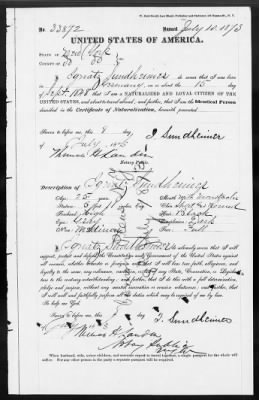 No. 33872
Issued July 10, 1863
UNITED STATES OF AMERICA.
STATE OF New York
COUNTY OF
I, Ignatz Sundheimer do swear that I was born
in Germany on the 15 day
of Sept. 1838 that I am a NATURALIZED AND LOYAL CITIZEN OF THE
UNITED STATES, and about to travel abroad; and further, that I am the Identical Person
described in the Certificate of Naturalization, herewith presented
Sworn to before me, this 8 day
of July 1863
I Sundheimer
Thomas H Landon
Notary Public.
Description of Ignatz Sundheimer
Age: 25 years
Mouth: with Moustache
Stature: 5
Chin: Short & Round
Forehead: High
Hair: Black
Eyes: Grey
Complexion: Dark
Nose: Medium
Face: Full
I, Ignatz Sundheimer do solemnly swear that I will
support, protect and defend the Constitution and Government of the United States against
all enemies, whether domestic or foreign; and that I will bear true faith, allegiance, and
loyalty to the same, any ordinance, resolution, or law of any State, Convention, or Legislature
to the contrary notwithstanding; and further, that I do this with a full determination,
pledge and purpose, without any mental reservation or evasion whatsoever; and further, that
I will well and faithfully perform all the duties which may be required of me by law.
So help me God.
Sworn to before me, this 8 day
of July
I Sundheimer
Thomas H Landon
Notary Public
When husband, wife, minor children, and servants expect to travel together, a single passport for the whole will
suffice. For any other person in the party a separate passport will be required.